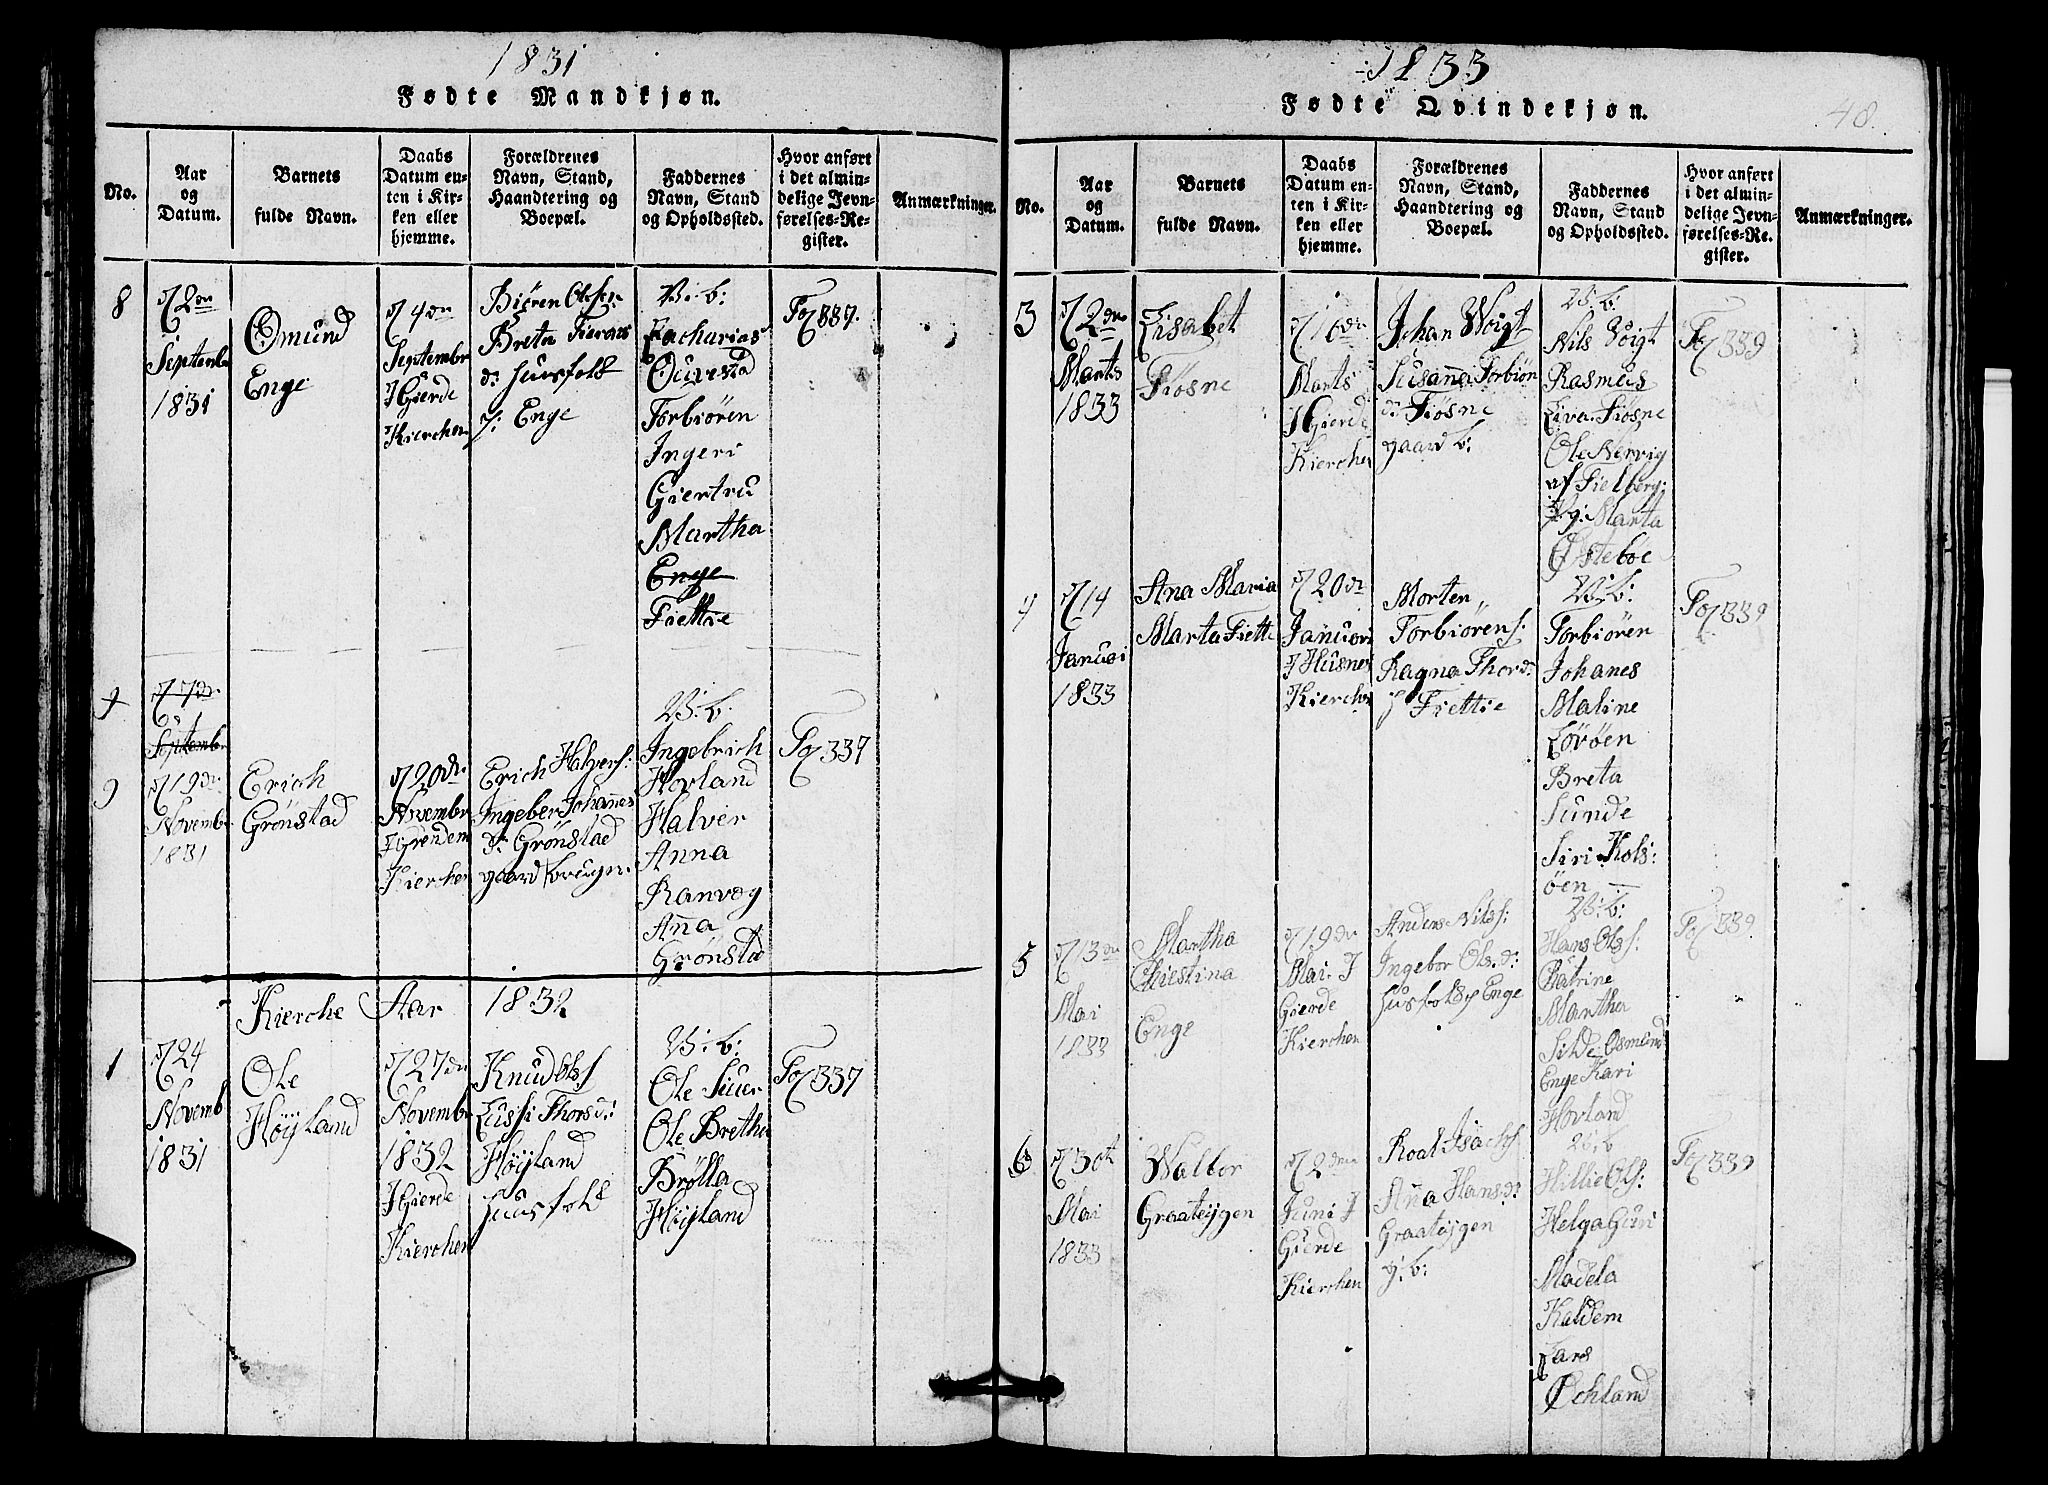 1831
Fødte Mandkjøn.
No.
Aar
og
Datum.
Barnets
fulde Navn.
Daabs
Datum en-
ten i Kir-
ken eller
hjemme.
Forældrenes
Navn, Stand,
Haandtering og
Boepæl.
Faddernes
Navn, Stand
og Opholdssted.
Hvor anført
i det almin-
delige Jevn-
førelses-Re-
gister.
Anmærkninger.
8
2den
Septemb
1831
Omund
Enge
4de
Septembr
I Gierde
Kierchen
Biøren Olsen
Breta
d: Huusfolk
Enge
V: b:
Zacharias
Torbiøren
Ingeri
Giertru
Martha
Enge
Fiettie
Fol 337.
7de
Septembr
9
19de
Novemb
1831
Erich
Grönstad
20de
Novembr
Kierchen
Erich Halvers:
Ingeber Johannes
d: Grönstad
gaardbrugn.
V: b:
Ingebrich
Hovland
Halver
Anna
Ranvæg
Anna
Grönstad
Fol 337
Kierche Aar 1832
1
24
Novemb
1831
Ole
Höyland
27de
Novembr
1832
I Gierde
Kierchen
Knud Ols:
Lussi Thorsd:
Höyland
Huusfolk
V: b:
Ole
Ole Bretha
Brölla
Höyland
Fol 337
1833
Fødte Qvindekjøn.
48.
No.
Aar
og
Datum.
Barnets
fulde Navn.
Daabs
Datum en-
ten i Kir-
ken eller
hjemme.
Forældrenes
Navn, Stand,
Haandtering og
Boepæl.
Faddernes
Navn, Stand
og Opholdssted.
Hvor anført
i det almin-
delige Jevn-
førelses-Re-
gister.
Anmærkninger.
3
2de
Marts
1833
Lisabet
Fiøsne
10de
Marts
I Gierde
Kierchen
Johan Woigt
Susanna Torbiørn
d: Fiøsne
gaard b:
V: b:
Nils Voigt
Rasmus
Fiøsne
Ole Nervig
af Fielberg:
Pg: Marta
Østebøe
Fol 339
4
14
Januari
1833
Ana Maria
Marta Fiette
20de
Januari
I Husnes
Kierchen
Morten
Torbiørens:
Ragna Thord:
Fiettie
V: b:
Torbiøren
Johanes
Maline
Breta
Sunde
Siri Kols:
öen
Fol 339
5
13de
Mai
1833
Martha
Christina
Enge
19de
Mai I
Gierde
Kierchen
Anders Nils:
Ingebor Ols:d:
Husfolk Enge
V: b:
Hans Ols:
Catrine
Martha
Silde Osmund
Enge Kari
Hovland
Fol 339
6
30t
Mai
1833
Walbor
Graateygen
2den
Juni I
Gierde
Kierchen
Roal Isachs:
Ana Hans:d:
Graateygen
g: b:
V: b
Hillie Ols:
Helga Guri
Madela
Kaldem
Lars
Øchland
Fol 339